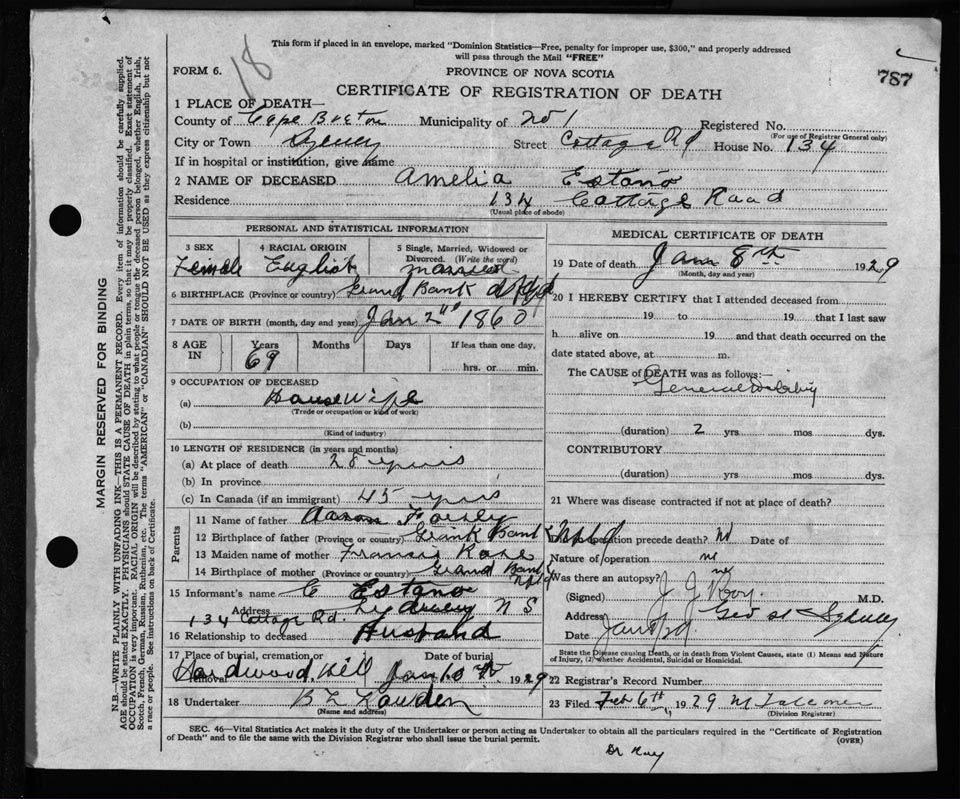 This form if placed in an envelope, marked "Dominion Statistics—Free, penalty for improper use, $300," and properly addressed
will pass through the Mail "FREE"
18
787
FORM 6.
PROVINCE OF NOVA SCOTIA
CERTIFICATE OF REGISTRATION OF DEATH
1 PLACE OF DEATH—
County of Cape Breton Municipality of No 1 Registered No.
(For use of Registrar General only)
City or Town Sydney Street Cottage Rd House No. 134
If in hospital or institution, give name
2 NAME OF DECEASED Amelia Estano
Residence 134 Cottage Road
(Usual place of abode)
PERSONAL AND STATISTICAL INFORMATION
3 SEX 4 RACIAL ORIGIN 5 Single, Married, Widowed or
Divorced. (Write the word)
Female English Married
6 BIRTHPLACE (Province or country) Grand Bank Nfld
7 DATE OF BIRTH (month, day and year) Jan 2nd 1860
8 AGE IN Years Months Days If less than one day,
69 hrs. or min.
9 OCCUPATION OF DECEASED
(a) Housewife
(Trade or occupation or kind of work)
(b)
(Kind of industry)
10 LENGTH OF RESIDENCE (in years and months)
(a) At place of death 28 years
(b) In province
(c) In Canada (if an immigrant) 45 years
Parents
11 Name of father Aaron
12 Birthplace of father (Province or country) Grank Bank Nfld
13 Maiden name of mother Francis
14 Birthplace of mother (Province or country) Grand Bank
Nfld
15 Informant's name C Estano
Address Sydney N S
134 Cottage Rd.
16 Relationship to deceased Husband
17 Place of burial, cremation, or removal Date of burial
Hardwood Hill Jan 10 th 1929
18 Undertaker B L
(Name and address)
MEDICAL CERTIFICATE OF DEATH
19 Date of death Jan 8th 1929
(Month, day and year)
20 I HEREBY CERTIFY that I attended deceased from
19 to 19 that I last saw
h alive on 19 and that death occurred on the
date stated above, at m.
The CAUSE of DEATH was as follows:—
General debility
(duration) 2 yrs mos dys.
CONTRIBUTORY
(duration) yrs mos dys.
21 Where was disease contracted if not at place of death?
Did operation precede death? N Date of
Nature of operation no
Was there an autopsy? no
(Signed) J J Roy. M.D.
Address Geo St Sydney
Date
State the Disease causing Death, or in death from Violent Causes, state (1) Means and Nature
of Injury, (2) whether Accidental, Suicidal or Homicidal.
22 Registrar's Record Number
23 Filed Feb 6th, 1929
(Division Registrar)
SEC. 46—Vital Statistics Act makes it the duty of the Undertaker or person acting as Undertaker to obtain all the particulars required in the "Certificate of Registration
of Death" and to file the same with the Division Registrar who shall issue the burial permit.
(OVER)
MARGIN RESERVED FOR BINDING
N.B.—WRITE PLAINLY WITH UNFADING INK—THIS IS A PERMANENT RECORD. Every item of information should be carefully supplied.
AGE should be stated EXACTLY. PHYSICIANS should STATE CAUSE OF DEATH in plain terms, so that it may be properly classified. Exact statement of
OCCUPATION is very important. RACIAL ORIGIN will be described by stating to what people or tongue the deceased person belonged, whether English, Irish,
Scotch, French, German, Russian, Ruthenian, etc. The terms "AMERICAN" or "CANADIAN" SHOULD NOT BE USED as they express citizenship but not
a race or people. See instructions on back of Certificate.